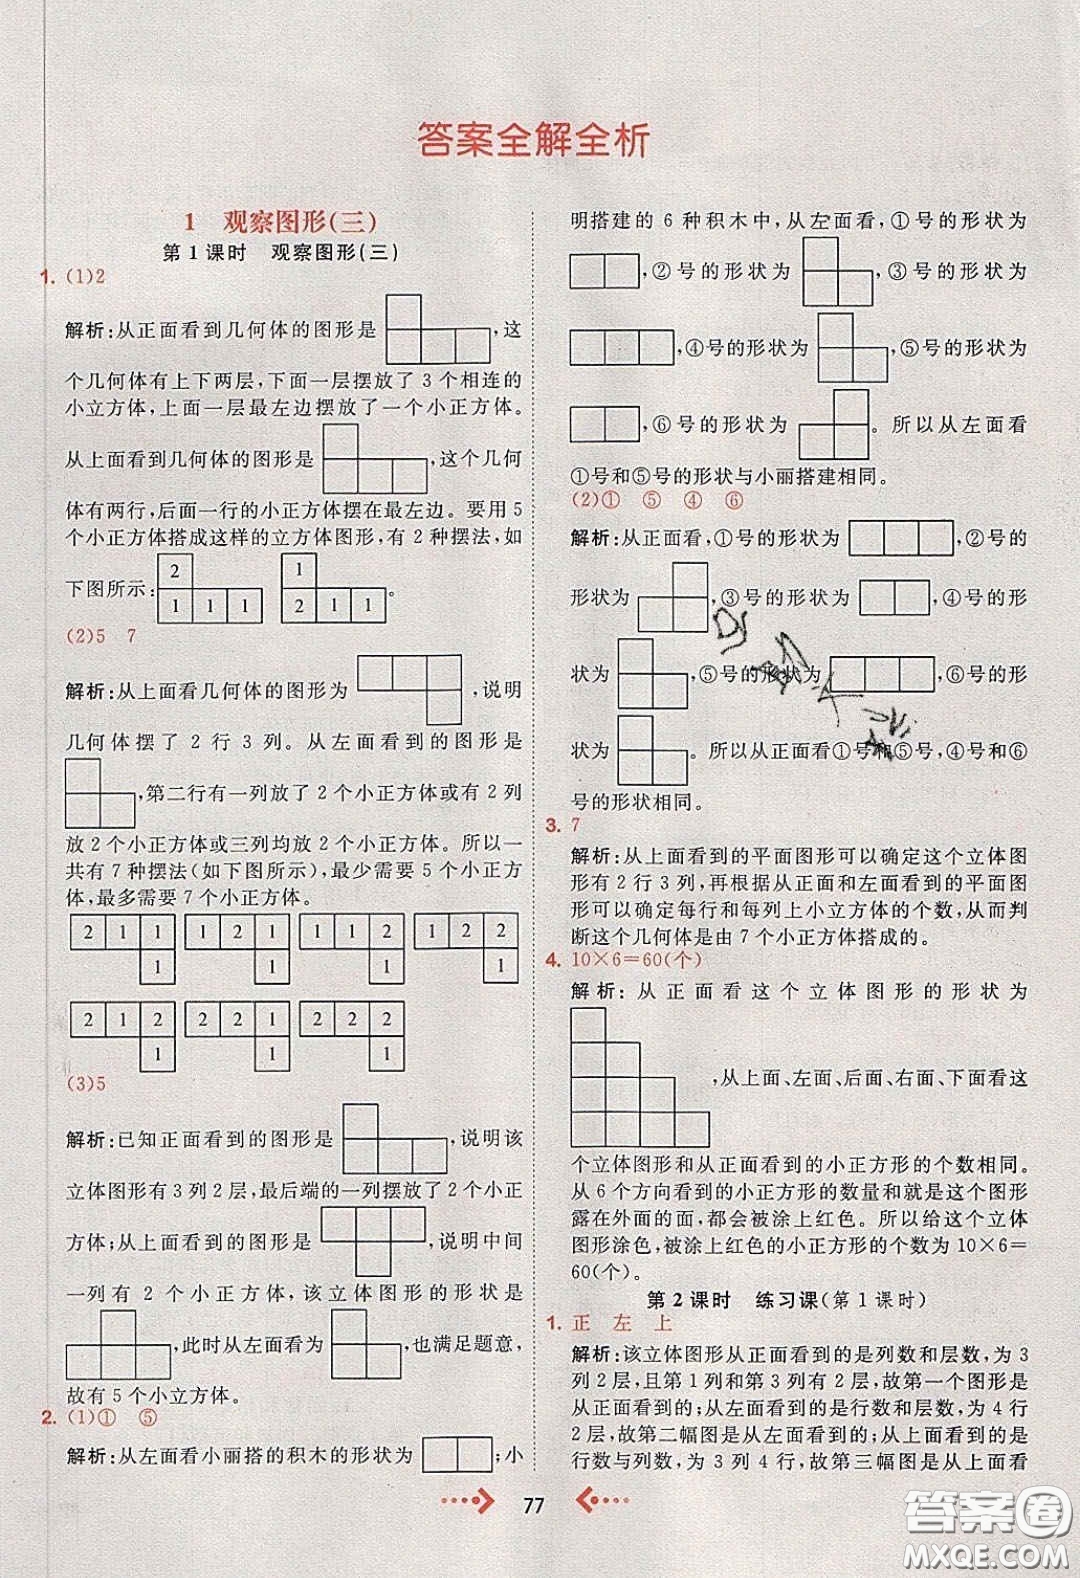 答案全解全析
1 观察图形(三)
第1课时 观察图形(三)
1. (1)2
解析:从正面看到几何体的图形是,这
个几何体有上下两层,下面一层摆放了3个相连的
小立方体,上面一层最左边摆放了一个小正方体。
从上面看到几何体的图形是,这个几何
体有两行,后面一行的小正方体摆在最左边。要用5
个小正方体搭成这样的立方体图形,有2种摆法,如
下图所示:
2
1 1 1
1
2 1 1
。
(2)5 7
解析:从上面看几何体的图形为,说明
几何体摆了2行3列。从左面看到的图形是
,第二行有一列放2个小正方体或有2列
放2个小正方体或三列均放2个小正方体。所以一
共有7种摆法(如下图所示),最少需要5个小正方
体,最多需要7个小正方体。
2 1 1 1 2 1 1 1 2 1 2 2
1 1 1 1
2 1 2 2 2 1 2 2 2
1 1 1
(3)5
解析:已知正面看到的图形是,说明该
立体图形有3列2层,最后端的一列摆放了2个小正
方体;从上面看到的图形是,说明中间
一列有2个小正方体,该立体图形的形状是
,此时从左面看为,也满足题意,
故有5个小立方体。
2. (1)① ⑤
解析:从左面看小丽搭的积木的形状为;小
明搭建的6种积木中,从左面看,①号的形状为
,②号的形状为,③号的形状为
,④号的形状为,⑤号的形状为
,⑥号的形状为。所以从左面看
①号和⑤号的形状与小丽搭建相同。
(2)① ⑤ ④ ⑥
解析:从正面看,①号的形状为,②号的
形状为,③号的形状为,④号的形
状为,⑤号的形状为,⑥号的形
状为。所以从正面看①号和⑤号,④号和⑥
号的形状相同。
3. 7
解析:从上面看到的平面图形可以确定这个立体图
形有2行3列,再根据从正面和左面看到的平面图
形可以确定每行和每列上小立方体的个数,从而判
断这个几何体是由7个小正方体搭成的。
4. 10×6=60(个)
解析:从正面看这个立体图形的形状为
,从上面、左面、后面、右面、下面看这
个立体图形和从正面看到的小正方形的个数相同。
从6个方向看到的小正方形的数量和就是这个图形
露在外面的面,都会被涂上红色。所以给这个立体
图形涂色,被涂上红色的小正方形的个数为10×6=
60(个)。
第2课时 练习课(第1课时)
1. 正 左 上
解析:该立体图形从正面看到的是列数和层数,为3
列2层,且第1列和第3列有2层,故第一个图形是
从正面看到的;从左面看到的是行数和层数,为4行
2层,故第二幅图是从左面看到的;从上面看到的是
行数与列数,为3列4行,故第三幅图是从上面看
77
答案圈
MXQE.COM